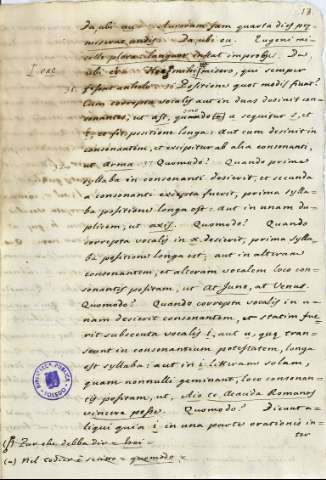 13
Da, ubi au Auroram jam quarta dies per
miserae audis Da, ubi eu. Eugeni mi
selle, plora, languor instat improbus. Da,
ubi
misero, que semper
Positione quot modis fiunt?
Cum correpta vocalis aut in duas desinit con
sonantes, ut ast, a sequitur s, et
t, et fit positione longa: Aut cum desinit in
consonantem, et excipitur ab alia consonanti,
ut Arma. Quomodo? Quando prima
syllaba in consonanti desierit, et secunda
a consonanti excepta fuerit, prima sylla-
ba positione longa est: Aut in unam du-
plicem, ut axis. Quomodo? Quando
correpta vocalis in x desierit, prima sylla-
ba positione longa est, aut in alteram
consonantem, et alteram vocalem loco con
sonantis positam, ut At Juno, at Venus.
Quomodo? Quando correpta vocalis in u-
nam desierit consonantem, et statim fue
rit subsecuta vocalis i, aut u, quae trans-
seunt in consonantium potestatem, longa
est syllaba: aut in i litteram solam,
quam nonnulli geminant, loco consonan-
tis positam, ut, Aio te Aeacida Romanos
vincere posse. Quomodo? Dicunt a-
liqui quia i in una parte orationis in-
ter
BIBLIOTECA PUBLICA
TOLEDO
Par che debba dir =
(a) Nel codice è scritto = quomodo =